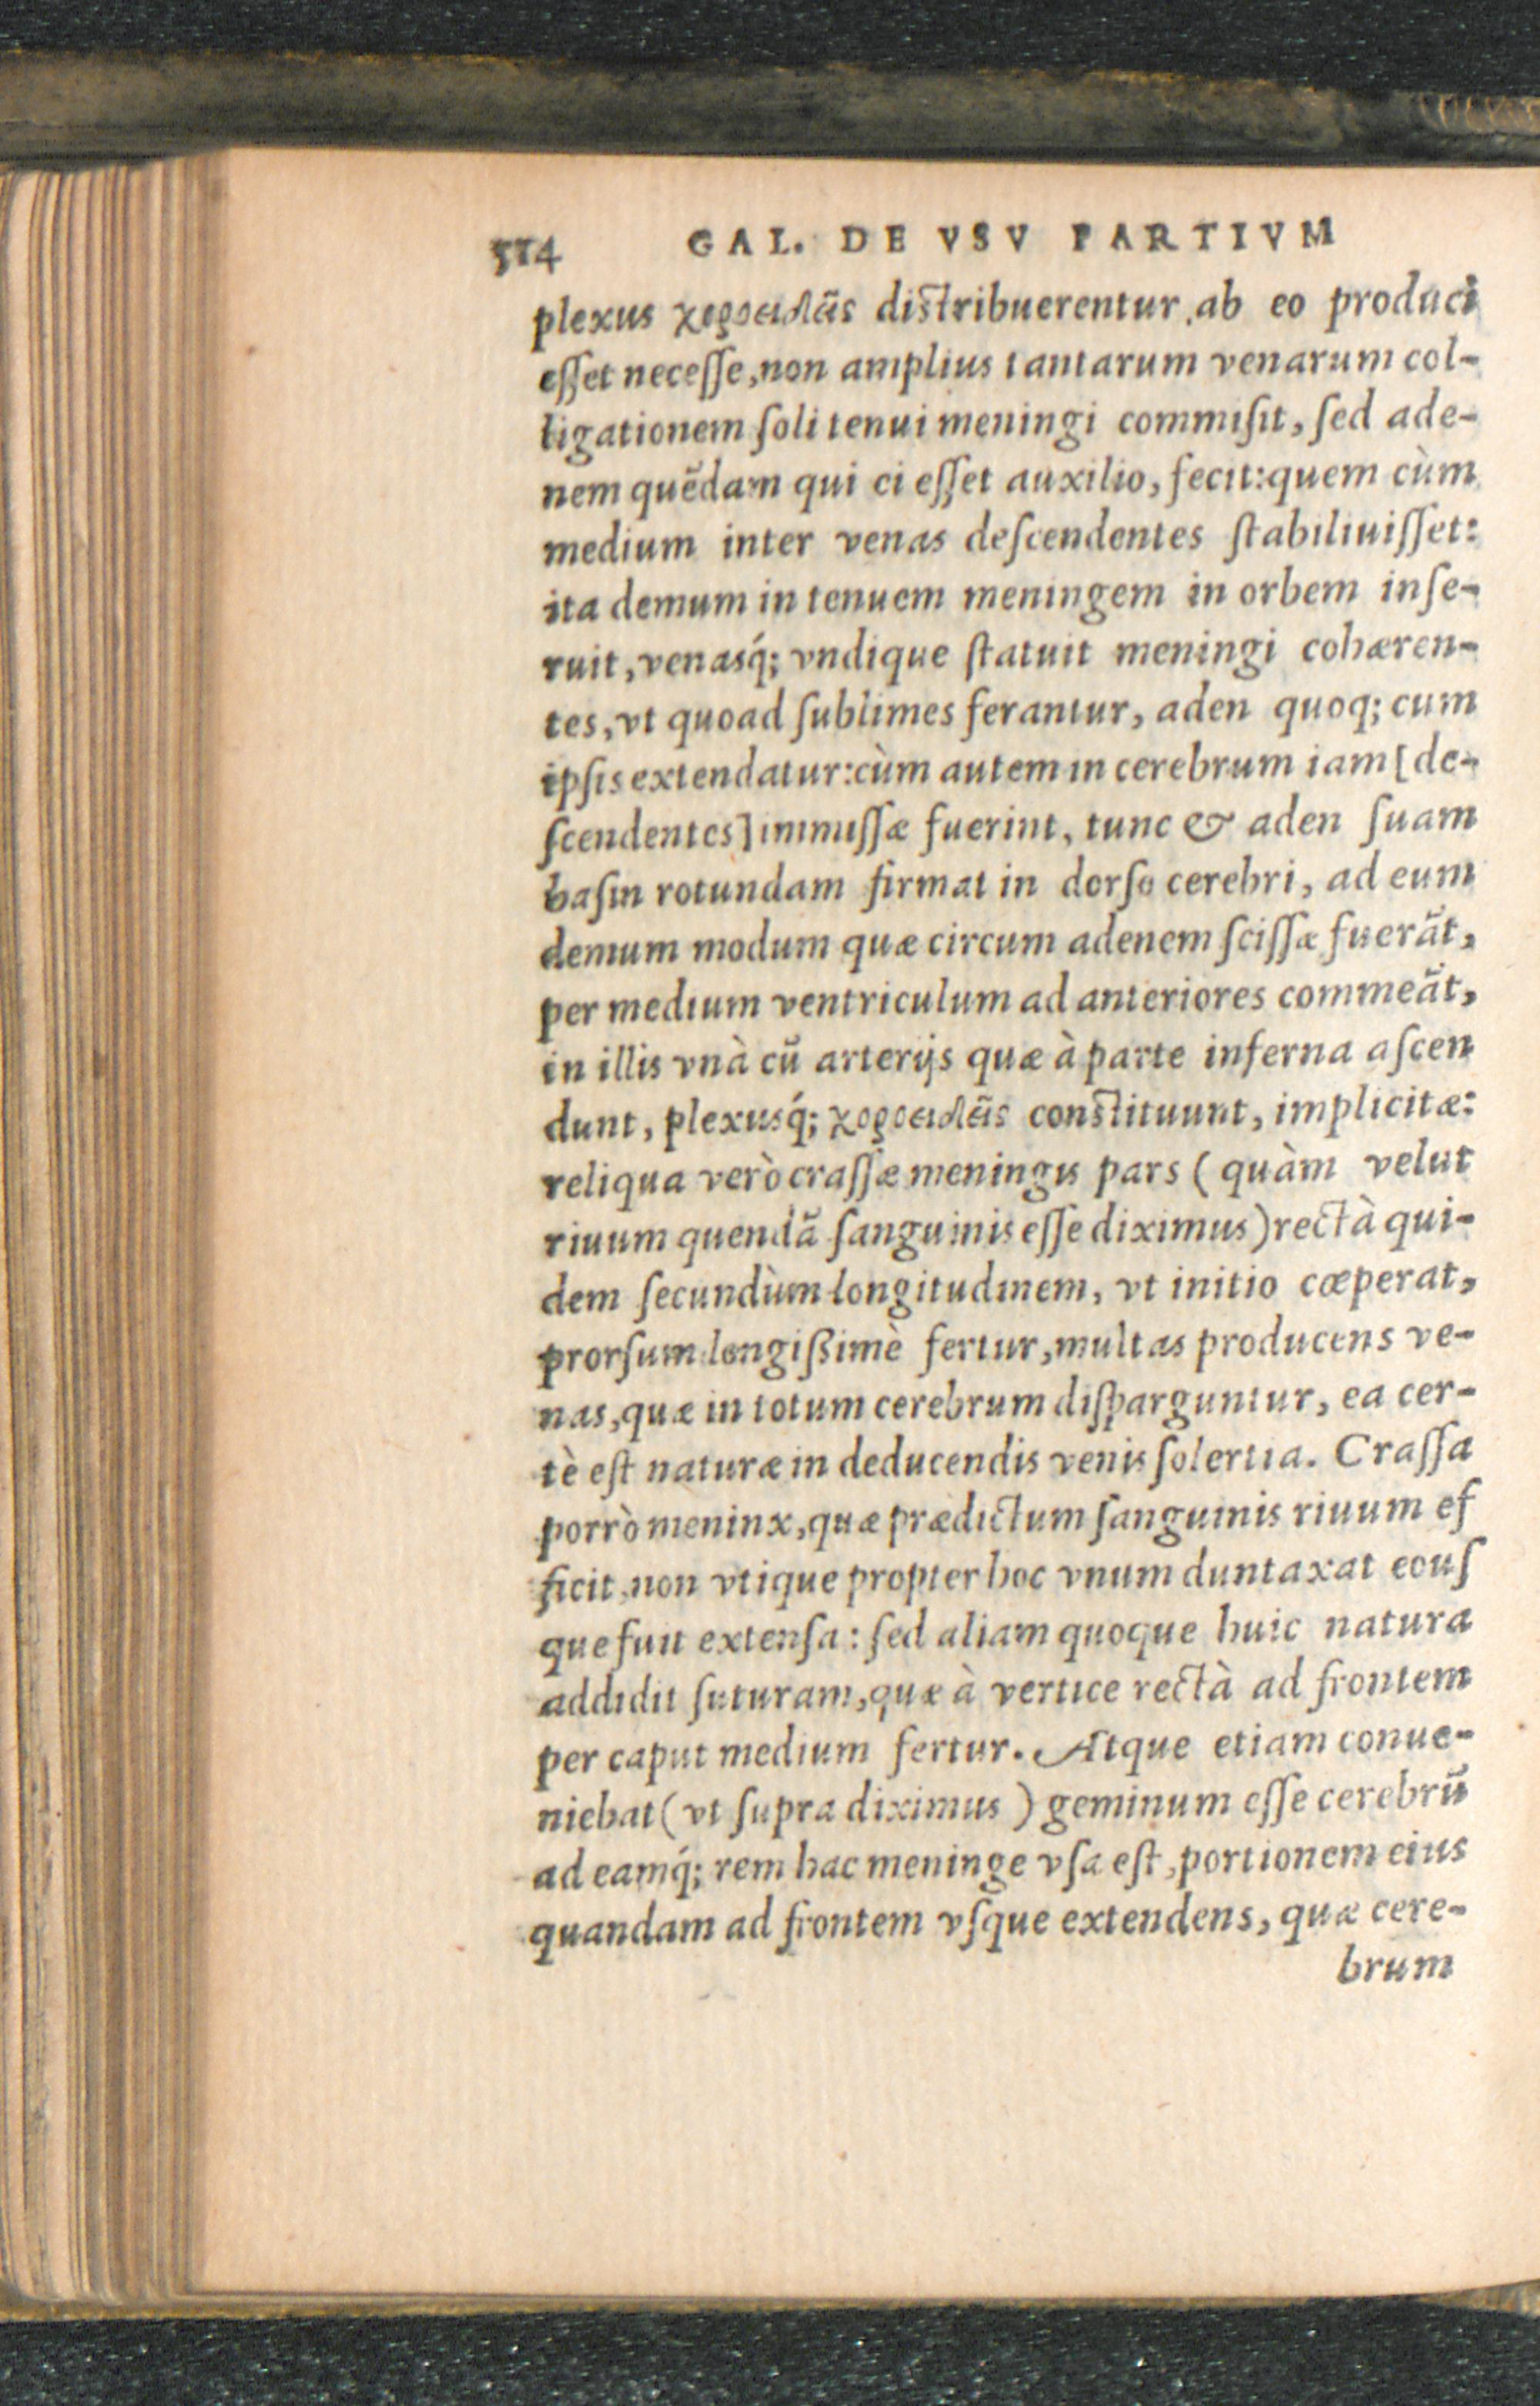 514 GAL. DE VSV PARTIVM
plexus χοροειδεῖς distribuerentur, ab eo produci
eſſet neceſſe, non amplius tantarum venarum col-
ligationem ſoli tenui meningi commiſit, ſed ade-
nem quēdam qui ei eſſet auxilio, fecit: quem cùm
medium inter venas deſcendentes ſtabiliuiſſet:
ita demum in tenuem meningem in orbem inſe-
ruit, venasq́; vndique ſtatuit meningi cohæren-
tes, vt quoad ſublimes ferantur, aden quoq; cum
ipſis extendatur: cùm autem in cerebrum iam [de-
ſcendentes] immiſſæ fuerint, tunc & aden ſuam
baſin rotundam firmat in dorſo cerebri, ad eum
demum modum quæ circum adenem ſciſſæ fuerāt,
per medium ventriculum ad anteriores commeāt,
in illis vnà cū arterijs quæ à parte inferna aſcen
dunt, plexusq́; χοροειδεῖς constituunt, implicitæ:
reliqua verò craſſæ meningis pars ( quàm velut
riuum quendā ſanguinis eſſe diximus) rectà qui-
dem ſecundùm longitudinem, vt initio cœperat,
prorſum longißimè fertur, multas producens ve-
nas, quæ in totum cerebrum diſparguntur, ea cer-
tè eſt naturæ in deducendis venis ſolertia. Craſſa
porrò meninx, quæ prædictum ſanguinis riuum ef
ficit, non vtique propter hoc vnum duntaxat eouſ
que fuit extenſa: ſed aliam quoque huic natura
addidit ſuturam, quæ à vertice rectà ad frontem
per caput medium fertur. Atque etiam conue-
niebat ( vt ſupra diximus ) geminum eſſe cerebrū
ad eamq́; rem hac meninge vſa eſt, portionem eius
quandam ad frontem vſque extendens, quæ cere-
brum